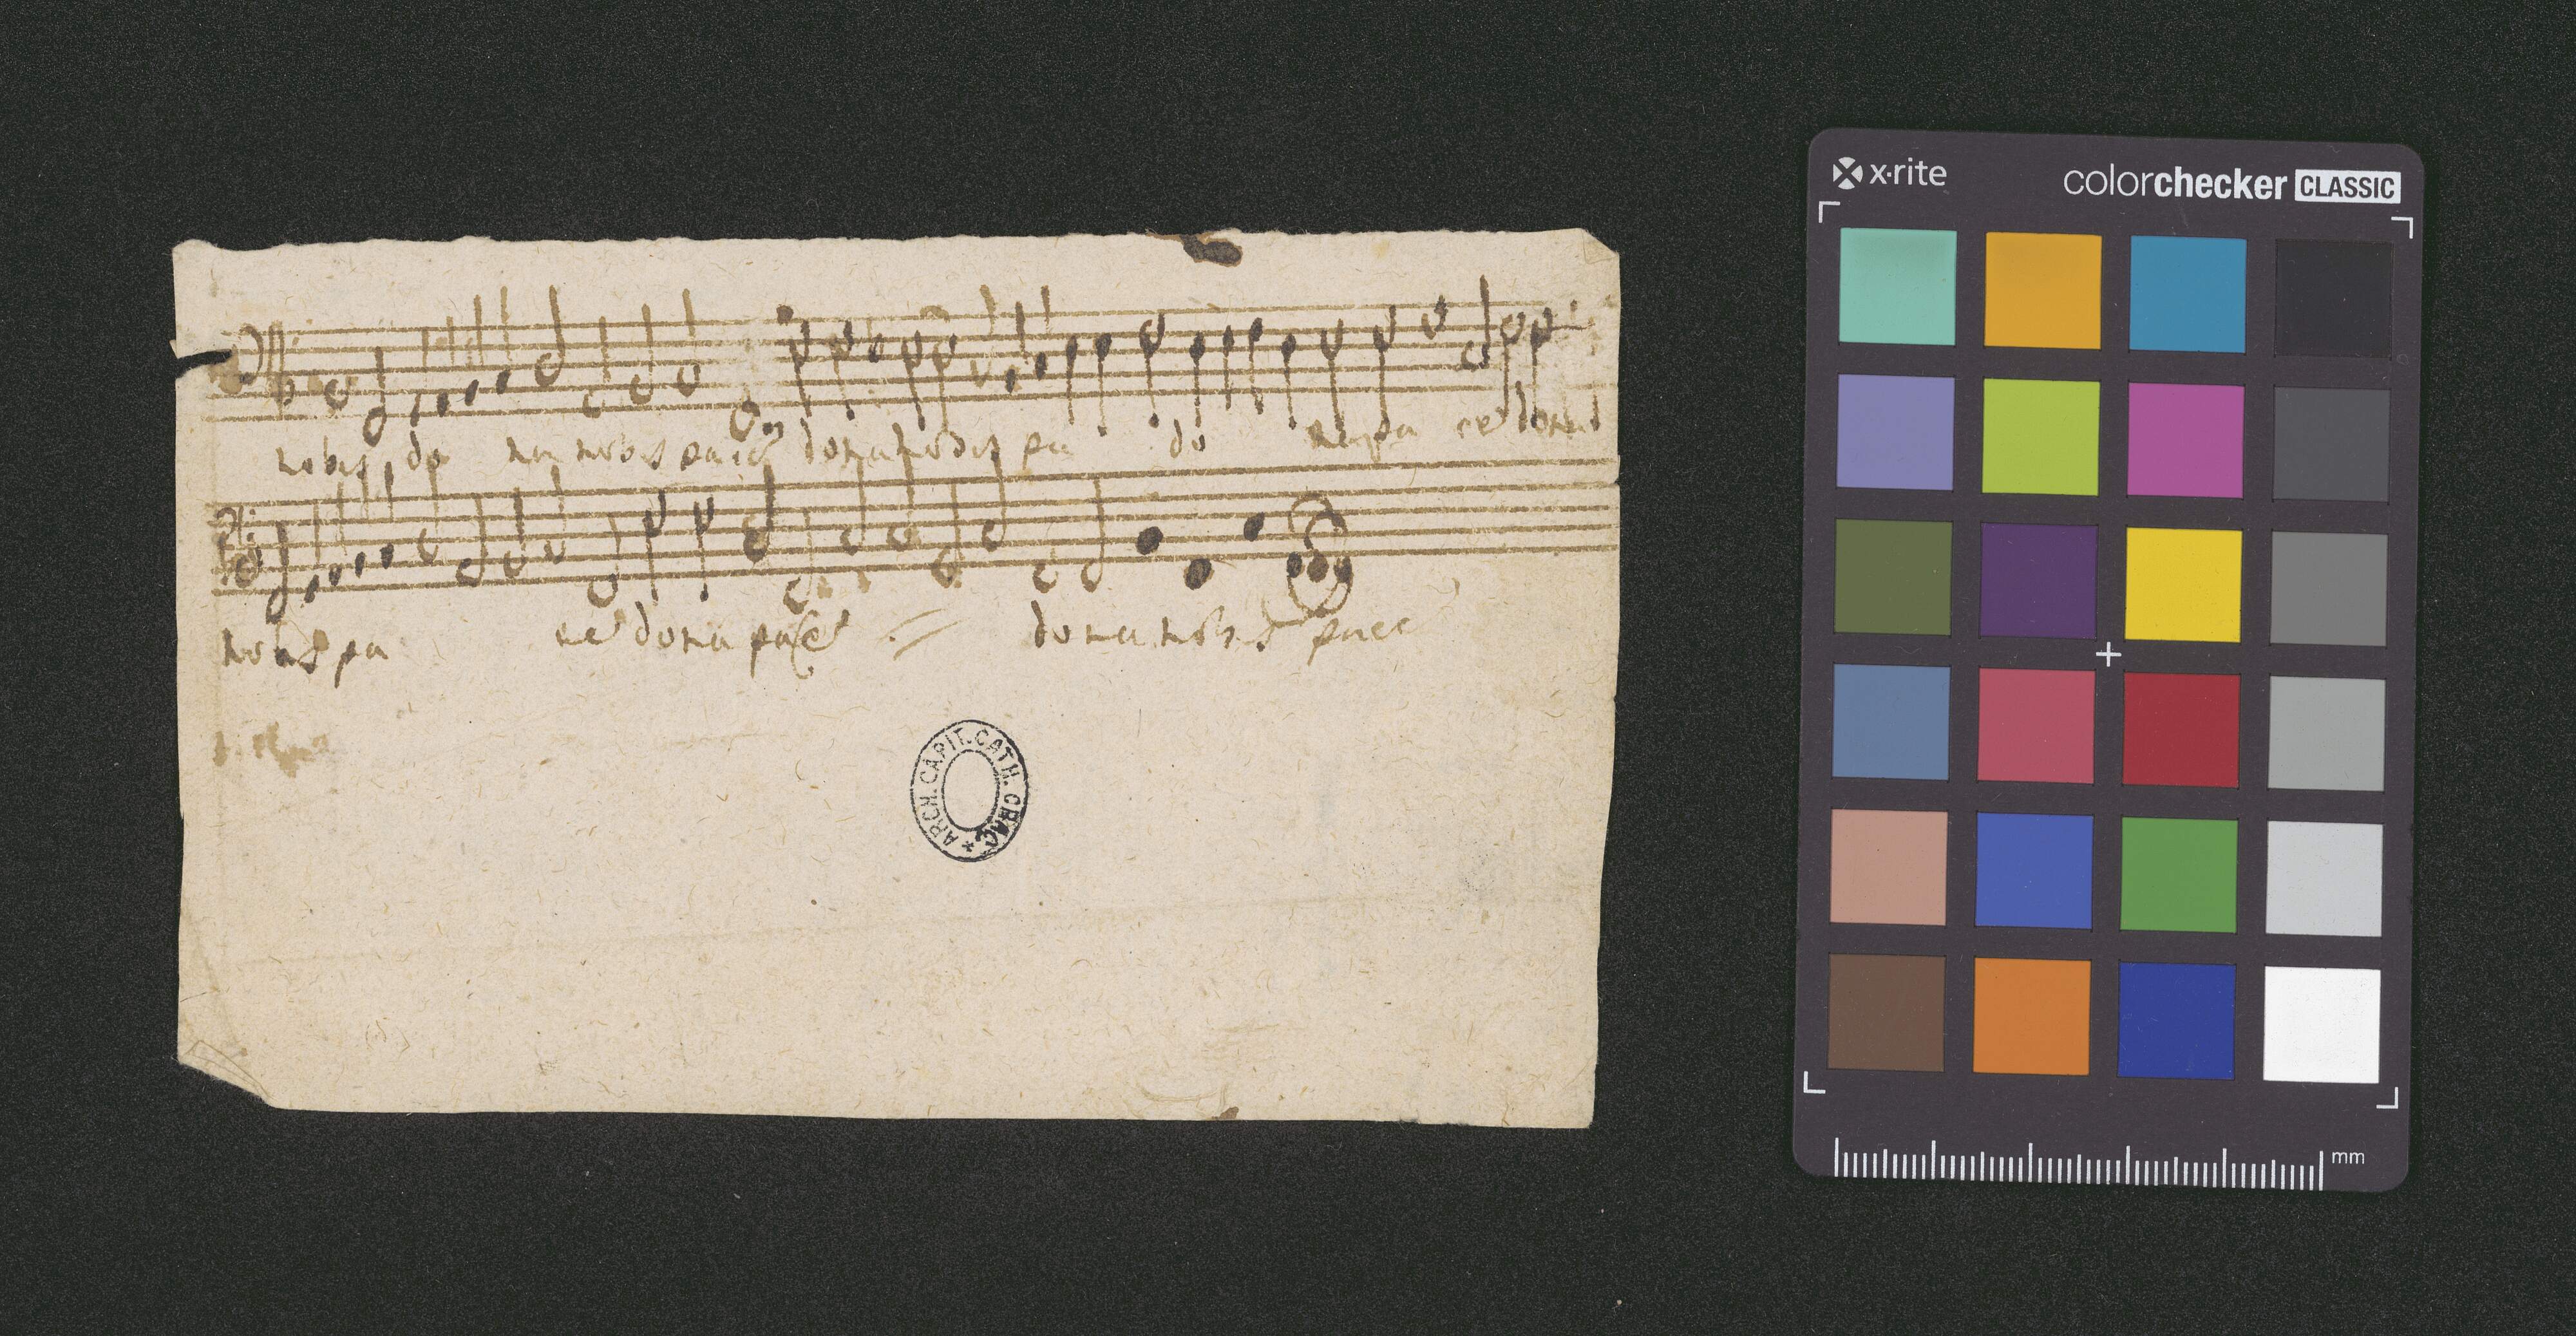 nobis do na nobis pacē dona nobis pa do na pa cē dona
nobis pa cē dona pacē dona nobis pace
ARCH. CAPIT. CATH. CRAC. *
x·rite
colorchecker CLASSIC
mm